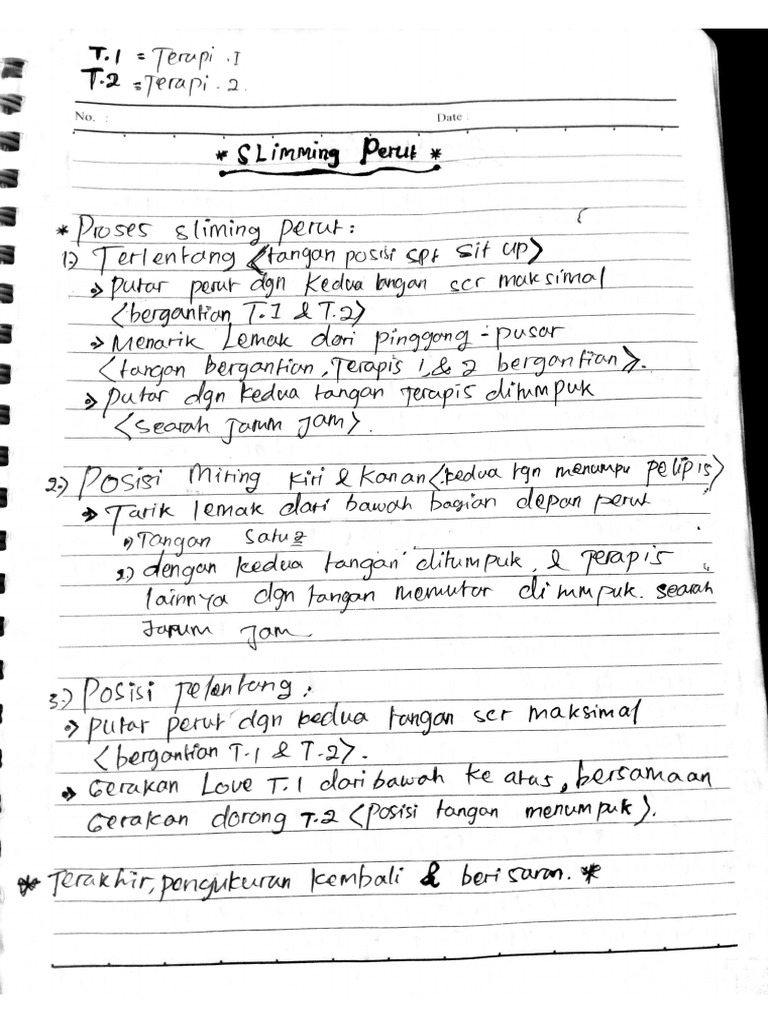 T.1 = Terapi .I
T.2 = Terapi . 2
No. :
Date :
* SLimming Perut *
* Proses sliming perut :
1.) Terlentang <tangan posisi spt sit up>
→ putar perut dgn kedua tangan scr maksimal
<bergantian T.I & T.2>
→ Menarik Lemak dari pinggang - pusar
<tangan Bergantian, Terapis 1, & 2 bergantian>.
→ putar dgn kedua tangan Terapis ditumpuk
<searah Jarum Jam>.
2.) Posisi Miring kiri & kanan <kedua tgn menumpu pelipis>
→ Tarik lemak dari bawah bagian depan perut
1) Tangan satu2
2.) dengan kedua tangan ditumpuk, & Terapis
lainnya dgn tangan memutar ditumpuk. searah
Jarum Jam
3.) Posisi Telentang :
→ putar perut dgn kedua tangan scr maksimal
<bergantian T.1 & T.2>.
→ Gerakan Love T.1 dari bawah ke atas, bersamaan
Gerakan dorong T.2 <posisi tangan menumpuk>.
* Terakhir, pengukuran kembali & beri saran. *